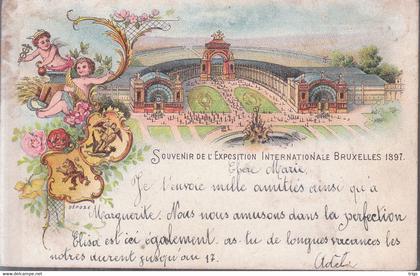 SOUVENIR DE L'EXPOSITION INTERNATIONALE BRUXELLES 1897.
DÉPOSÉ
Chère Marie
Je t'envoie mille amitiés ainsi qu'à
Marguerite. Nous nous amusons dans la perfection
Elisa est ici également. as-tu de longues vacances les
nôtres durent jusqu'au 17.
Adèle